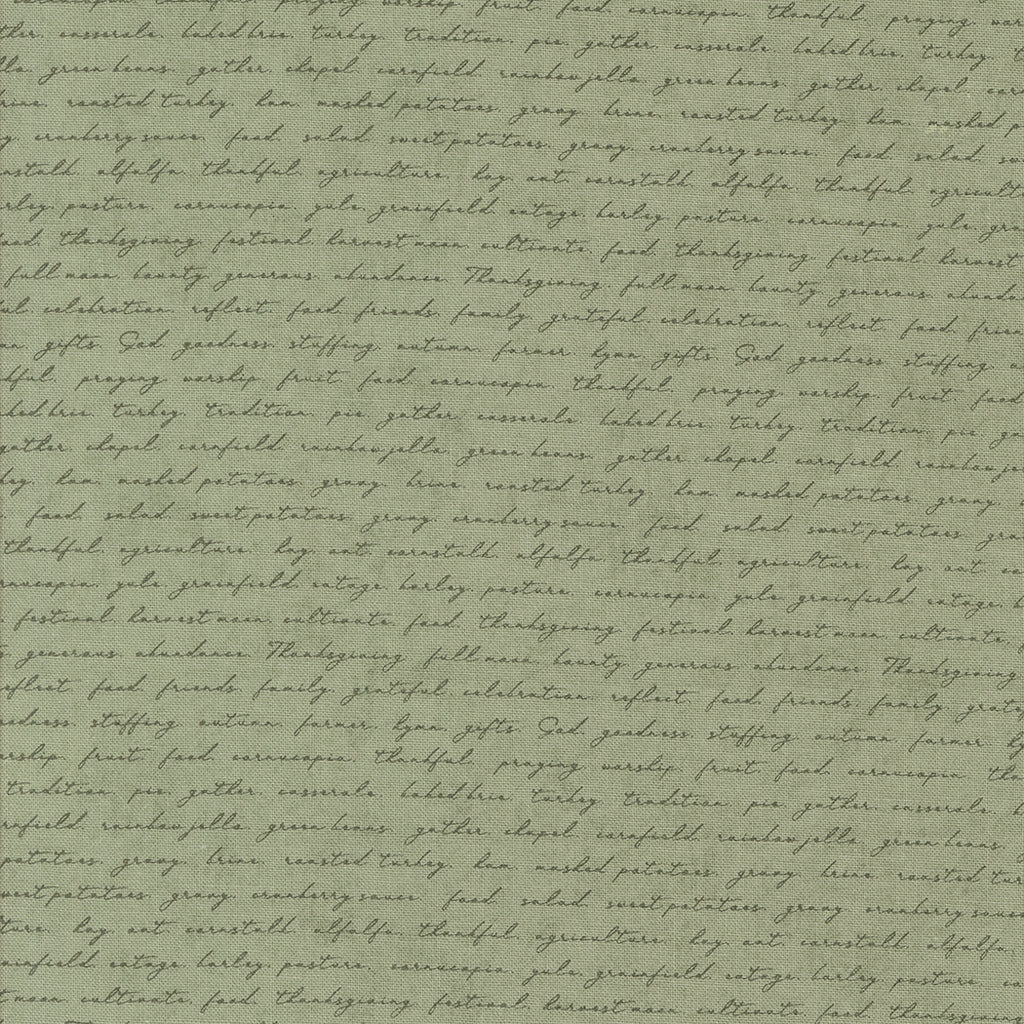 cornucopia. thankful. praying worship. fruit. food. cornucopia. thankful. praying.
casserole. baked brie. turkey. tradition. pie. gather. casserole. baked brie. turkey.
green beans. gather. chapel. cornfield. rainbow jello. green beans. gather. chapel.
brine. roasted turkey. ham. mashed potatoes. gravy. brine. roasted turkey. ham. mashed
cranberry sauce. food. salad. sweet potatoes. gravy. cranberry sauce. food. salad.
alfalfa. thankful. agriculture. hay. oat. cornstalk. alfalfa. thankful.
pasture. cornucopia. yule. grainfield. cotage. barley. pasture. cornucopia. yule.
food. thanksgiving. festival. harvest moon. cultivate. food. thanksgiving. festival. harvest
full moon. bounty. generous. abundance. Thanksgiving. full moon. bounty. generous.
celebration. reflect. food. friends. family. grateful. celebration. reflect. food.
gifts. God. goodness. stuffing. autumn. farmer. hymn. gifts. God. goodness. stuffing.
praying. worship. fruit. food. cornucopia. thankful. praying. worship. fruit. food.
baked brie. turkey. tradition. pie. gather. casserole. baked brie. turkey. tradition. pie.
gather. chapel. cornfield. rainbow jello. green beans. gather. chapel. cornfield. rainbow
ham. mashed potatoes. gravy. brine. roasted turkey. ham. mashed potatoes. gravy.
food. salad. sweet potatoes. gravy. cranberry sauce. food. salad. sweet potatoes.
thankful. agriculture. hay. oat. cornstalk. alfalfa. thankful. agriculture. hay. oat.
yule. grainfield. cotage. barley. pasture. cornucopia. yule. grainfield. cotage.
festival. harvest moon. cultivate. food. thanksgiving. festival. harvest moon. cultivate.
generous. abundance. Thanksgiving. full moon. bounty. generous. abundance. Thanksgiving.
reflect. food. friends. family. grateful. celebration. reflect. food. friends. family.
goodness. stuffing. autumn. farmer. hymn. gifts. God. goodness. stuffing. autumn. farmer.
worship. fruit. food. cornucopia. thankful. praying. worship. fruit. food. cornucopia.
tradition. pie. gather. casserole. baked brie. turkey. tradition. pie. gather. casserole.
rainbow jello. green beans. gather. chapel. cornfield. rainbow jello. green beans.
potatoes. gravy. brine. roasted turkey. ham. mashed potatoes. gravy. brine. roasted
sweet potatoes. gravy. cranberry sauce. food. salad. sweet potatoes. gravy. cranberry sauce
hay. oat. cornstalk. alfalfa. thankful. agriculture. hay. oat. cornstalk. alfalfa.
cotage. barley. pasture. cornucopia. yule. grainfield. cotage. barley. pasture.
moon. cultivate. food. thanksgiving. festival. harvest moon. cultivate. food. thanksgiving